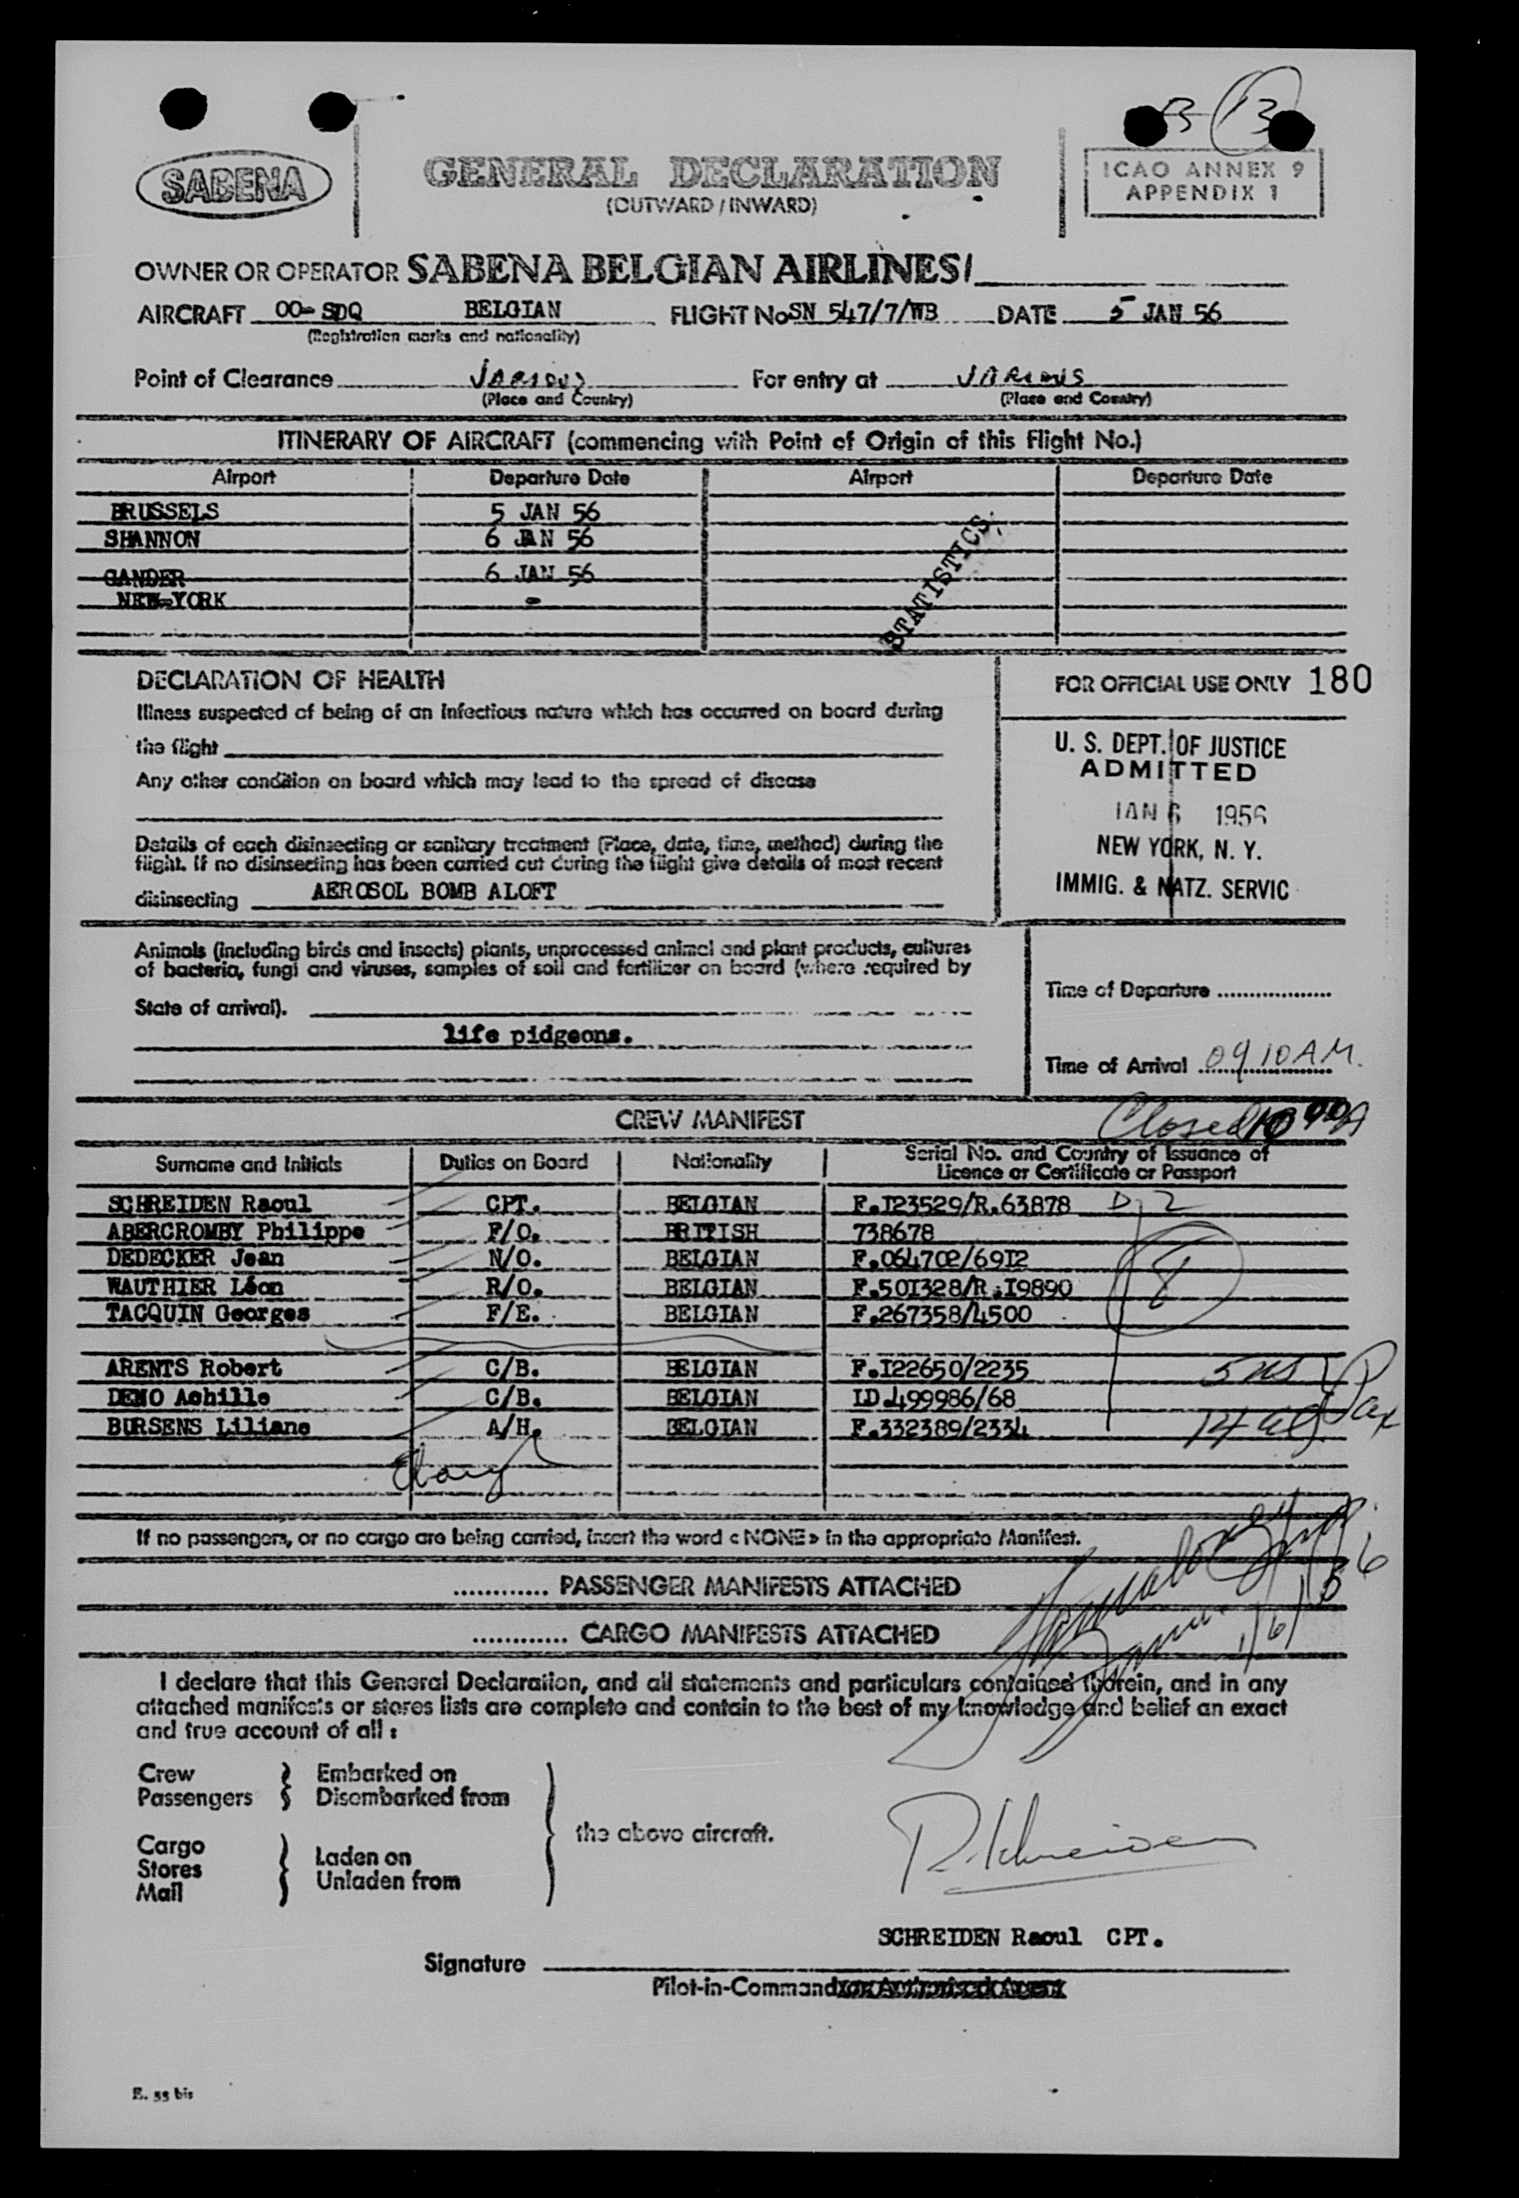 B 13
SABENA
GENERAL DECLARATION
(OUTWARD / INWARD)
ICAO ANNEX 9
APPENDIX 1
OWNER OR OPERATOR SABENA BELGIAN AIRLINES/
AIRCRAFT OO-SDQ BELGIAN FLIGHT No SN 547/7/WB DATE 5 JAN 56
(Registration marks and nationality)
Point of Clearance Various For entry at VARIOUS
(Place and Country) (Place and Country)
ITINERARY OF AIRCRAFT (commencing with Point of Origin of this Flight No.)
Airport Departure Date Airport Departure Date
BRUSSELS 5 JAN 56
SHANNON 6 JAN 56
GANDER 6 JAN 56
NEW-YORK -
STATISTICS
DECLARATION OF HEALTH
Illness suspected of being of an infectious nature which has occurred on board during
the flight
Any other condition on board which may lead to the spread of disease
Details of each disinsecting or sanitary treatment (Place, date, time, method) during the
flight. If no disinsecting has been carried out during the flight give details of most recent
disinsecting AEROSOL BOMB ALOFT
FOR OFFICIAL USE ONLY 180
U. S. DEPT. OF JUSTICE
ADMITTED
JAN 6 1956
NEW YORK, N. Y.
IMMIG. & NATZ. SERVIC
Animals (including birds and insects) plants, unprocessed animal and plant products, cultures
of bacteria, fungi and viruses, samples of soil and fertilizer on board (where required by
State of arrival).
life pidgeons.
Time of Departure ...................
Time of Arrival 0910 AM.
CREW MANIFEST
Closed 10 00 A
Surname and Initials Duties on Board Nationality Serial No. and Country of Issuance of
Licence or Certificate or Passport
SCHREIDEN Raoul CPT. BELGIAN F.I23529/R.63878 D 2
ABERCROMBY Philippe F/O. BRITISH 738678
DEDECKER Jean N/O. BELGIAN F.064702/69I2
WAUTHIER Léon R/O. BELGIAN F.50I328/R.I9890 8
TACQUIN Georges F/E. BELGIAN F.267358/4500
ARENTS Robert C/B. BELGIAN F.I22650/2235 5 us
DEMO Achille C/B. BELGIAN LD.499986/68
BURSENS Liliane A/H. BELGIAN F.332389/2334 14 al Pax
If no passengers, or no cargo are being carried, insert the word « NONE » in the appropriate Manifest.
............ PASSENGER MANIFESTS ATTACHED
............ CARGO MANIFESTS ATTACHED
1/6/56
I declare that this General Declaration, and all statements and particulars contained therein, and in any
attached manifests or stores lists are complete and contain to the best of my knowledge and belief an exact
and true account of all :
Crew Embarked on
Passengers Disembarked from
the above aircraft.
Cargo Laden on
Stores
Mail Unladen from
R. Schreiden
SCHREIDEN Raoul CPT.
Signature
Pilot-in-Command or Authorised Agent
E. 55 bis